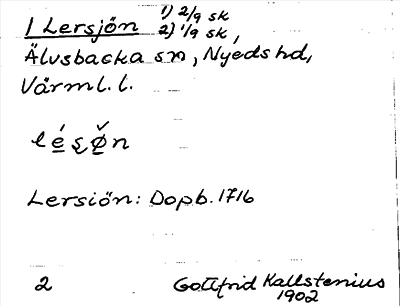 1 Lersjön 1) 2/9 sk
2) 1/9 sk,
Älvsbacka sn, Nyeds hd,
Värml. l.
Lersiön: Dopb. 1716
2 Gottfrid Kallstenius
1902